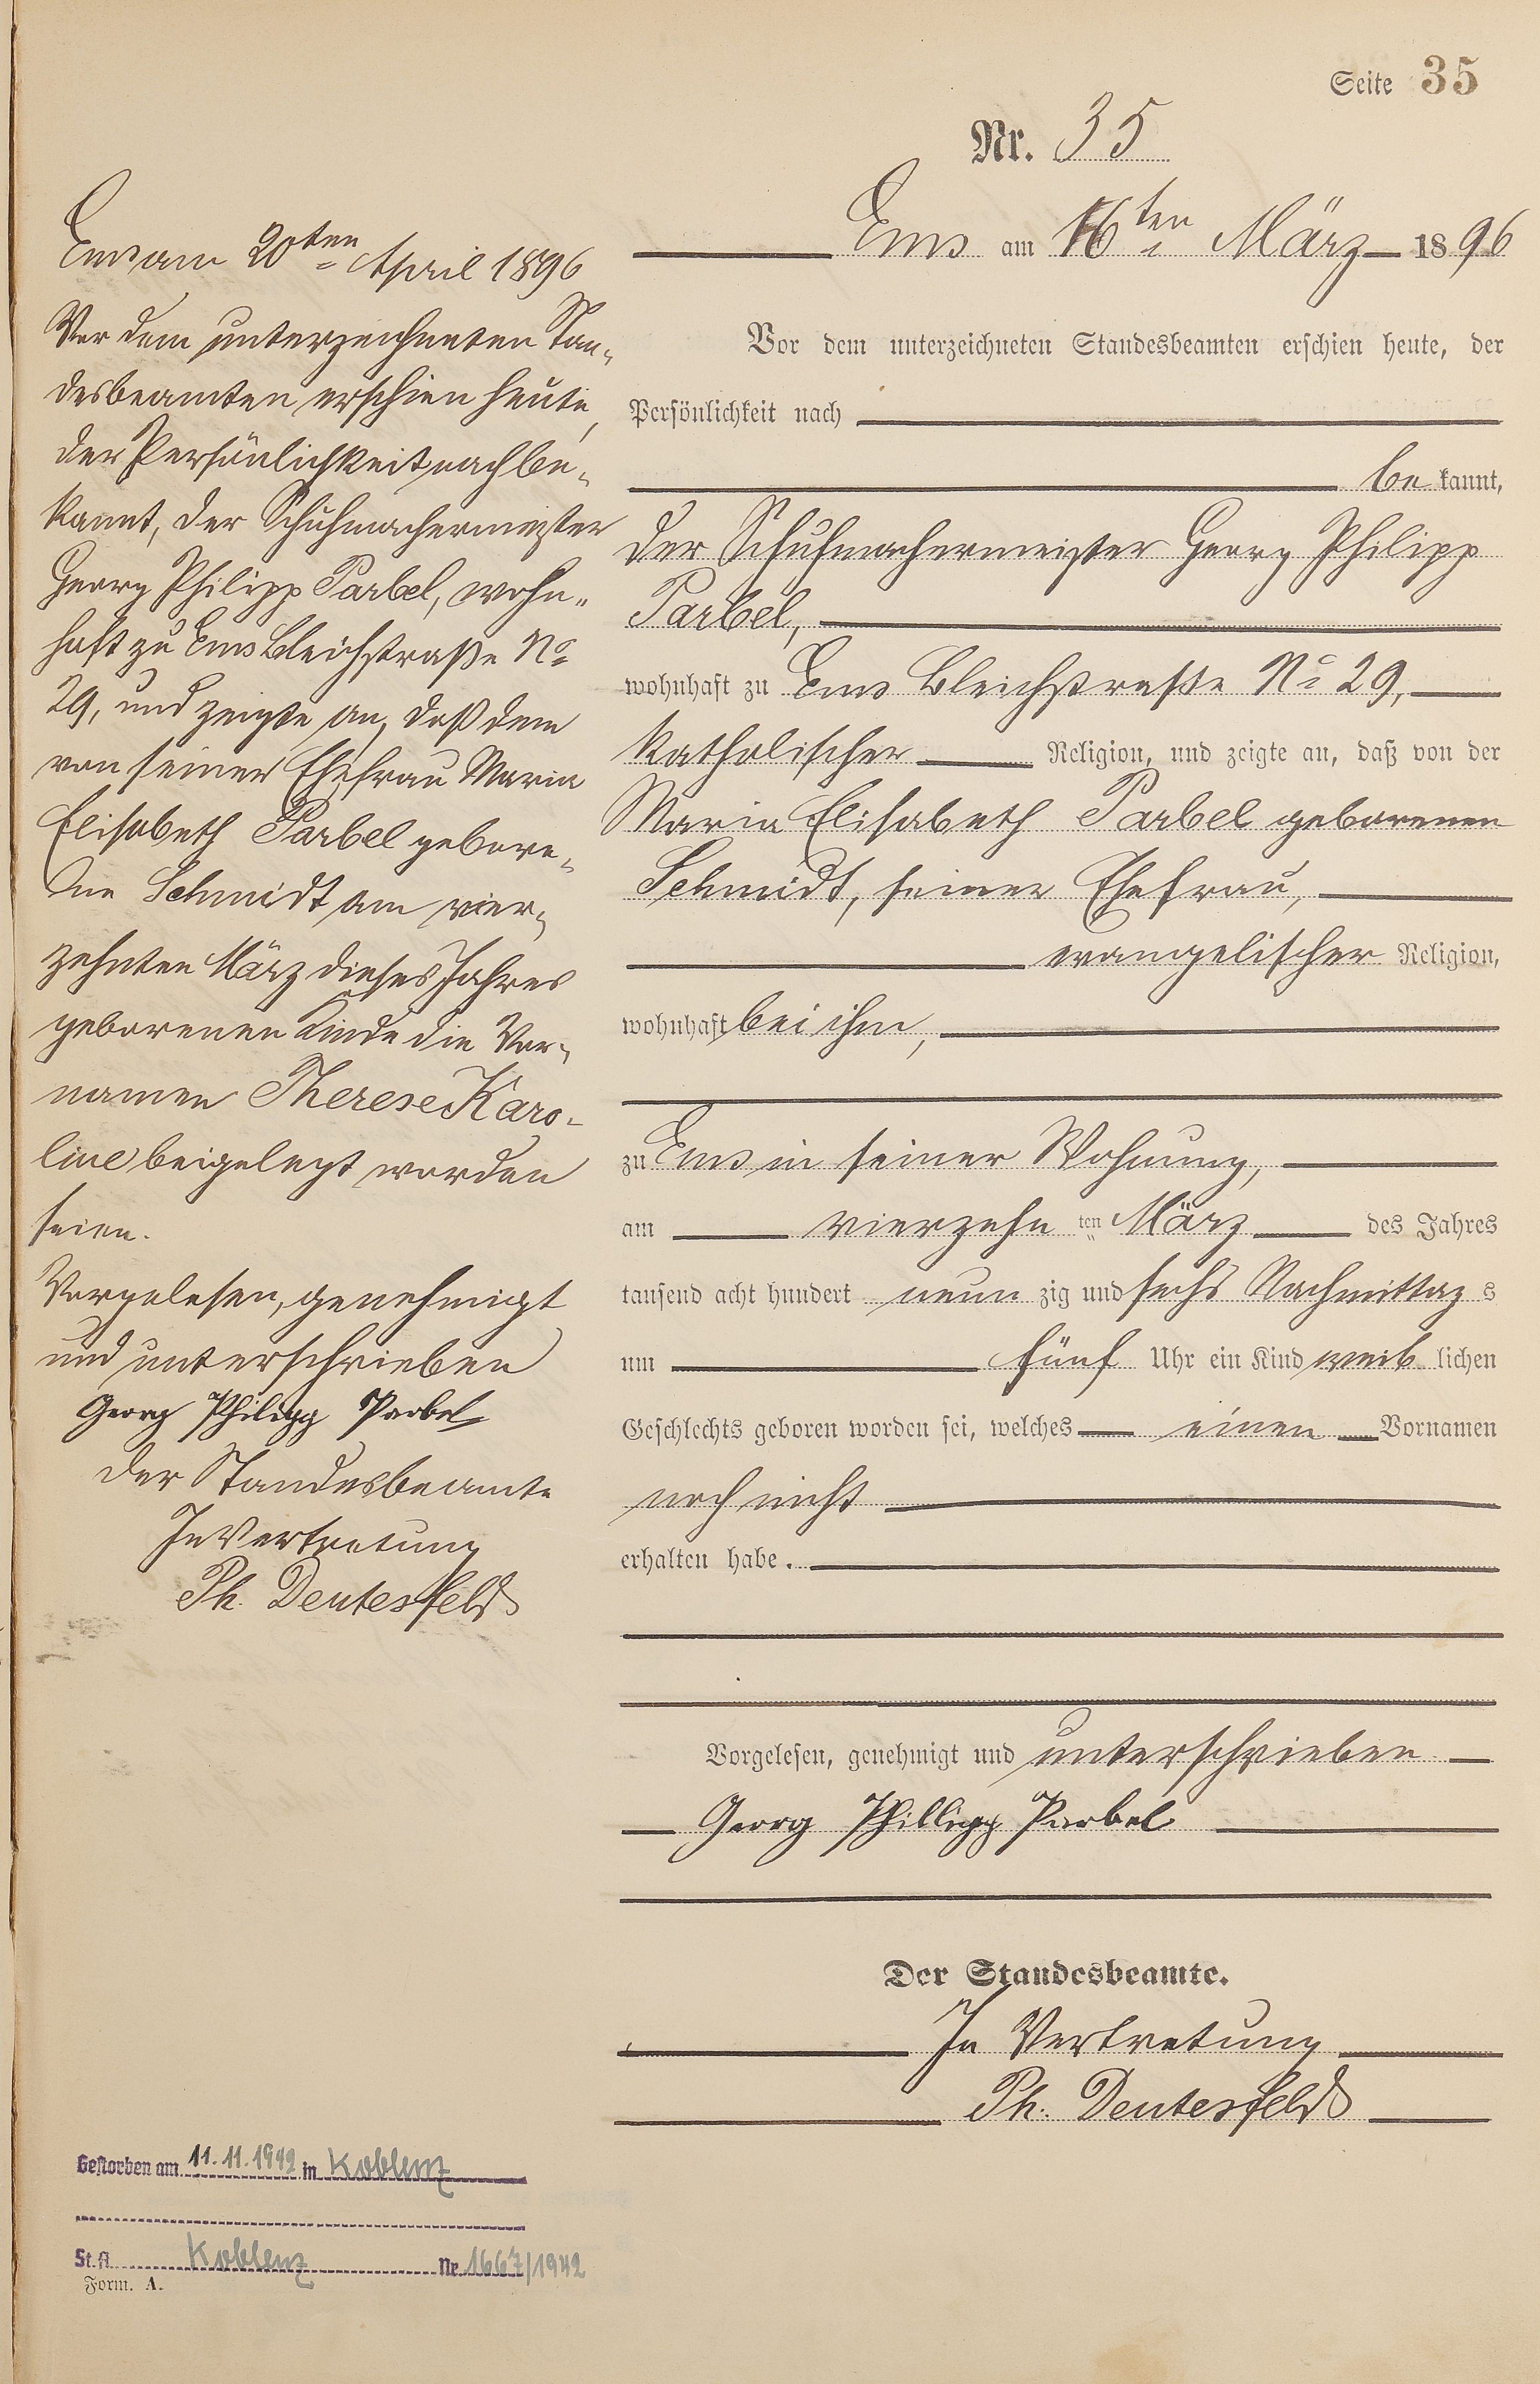 Seite 35
Nr. 35
Ems am 16ten März 1896
Vor dem unterzeichneten Standesbeamten erschien heute, der
Persönlichkeit nach
bekannt,
der Schuhmachermeister Georg Philipp
Parbel,
wohnhaft zu Ems Bleichstraße No 29,
katholischer Religion, und zeigte an, daß von der
Maria Elisabeth Parbel geborenen
Schmidt, seiner Ehefrau,
evangelischer Religion,
wohnhaft bei ihm,
zu Ems in seiner Wohnung,
am vierzehn ten März des Jahres
tausend acht hundert neunzig und sechs Nachmittags
um fünf Uhr ein Kind weiblichen
Geschlechts geboren worden sei, welches einen Vornamen
noch nicht
erhalten habe.
Vorgelesen, genehmigt und unterschrieben
Georg Phillipp Parbel
Der Standesbeamte.
In Vertretung
Ph. Deutesfeld
Ems am 20ten April 1896
Vor dem unterzeichneten Stan-
desbeamten erschien heute,
der Persönlichkeit nach be-
kannt, der Schuhmachermeister
Georg Philipp Parbel, wohn-
haft zu Ems Bleichstraße No
29, und zeigte an, daß dem
von seiner Ehefrau Maria
Elisabeth Parbel gebore-
ne Schmidt am vier-
zehnten März dieses Jahres
geborenen Kinde die Vor-
namen Therese Karo-
line beigelegt worden
seien.
Vorgelesen, genehmigt
und unterschrieben
Georg Philipp Parbel
Der Standesbeamte
In Vertretung
Ph. Deutesfeld
Gestorben am 11.11.1942 in Koblenz
St.A. Koblenz Nr. 1667/1942
Form. A.